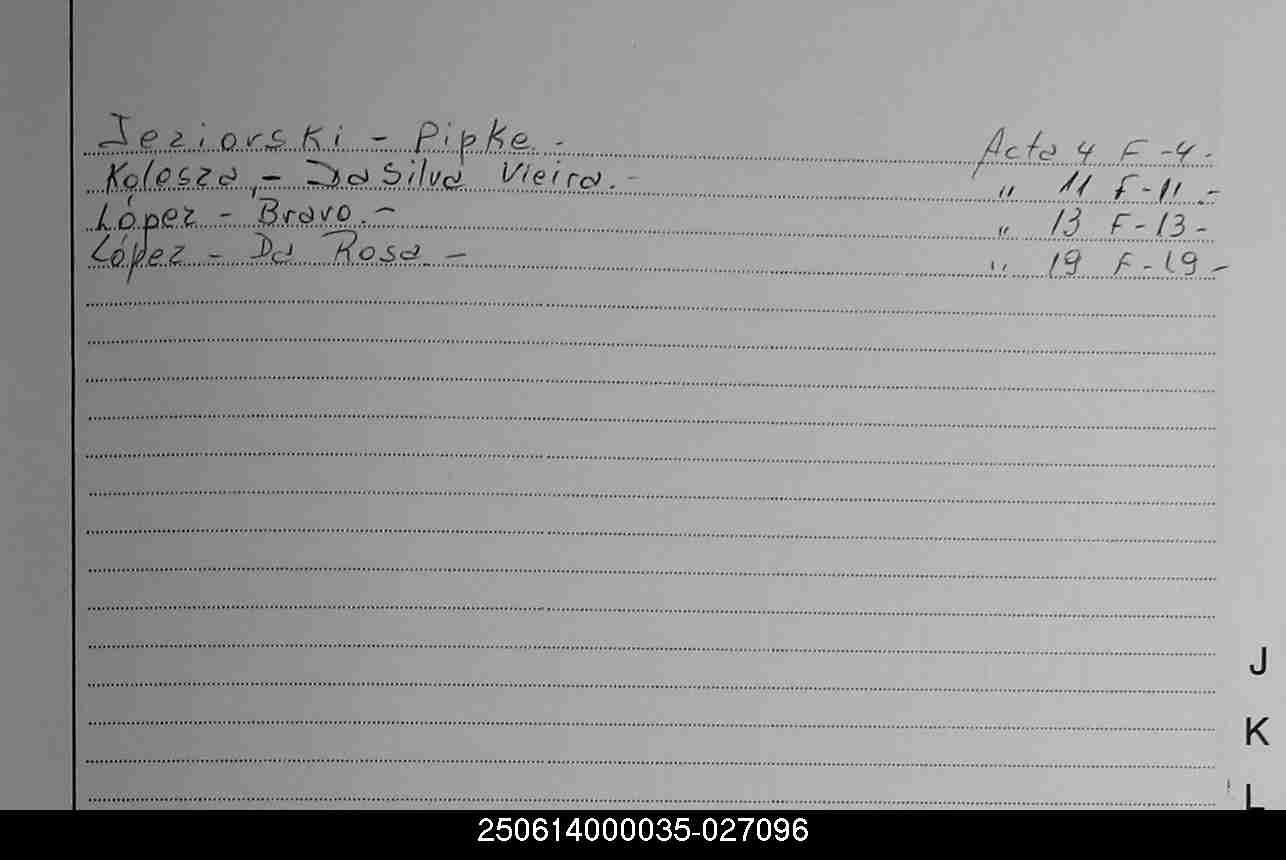 Jeziorski - Pipke.- Acta 4 F-4.
Kolosza,- Da Silva Vieira.- " 11 F-11.-
López - Bravo.- " 13 F-13-
López - Da Rosa - " 19 F-19-
J
K
L
250614000035-027096